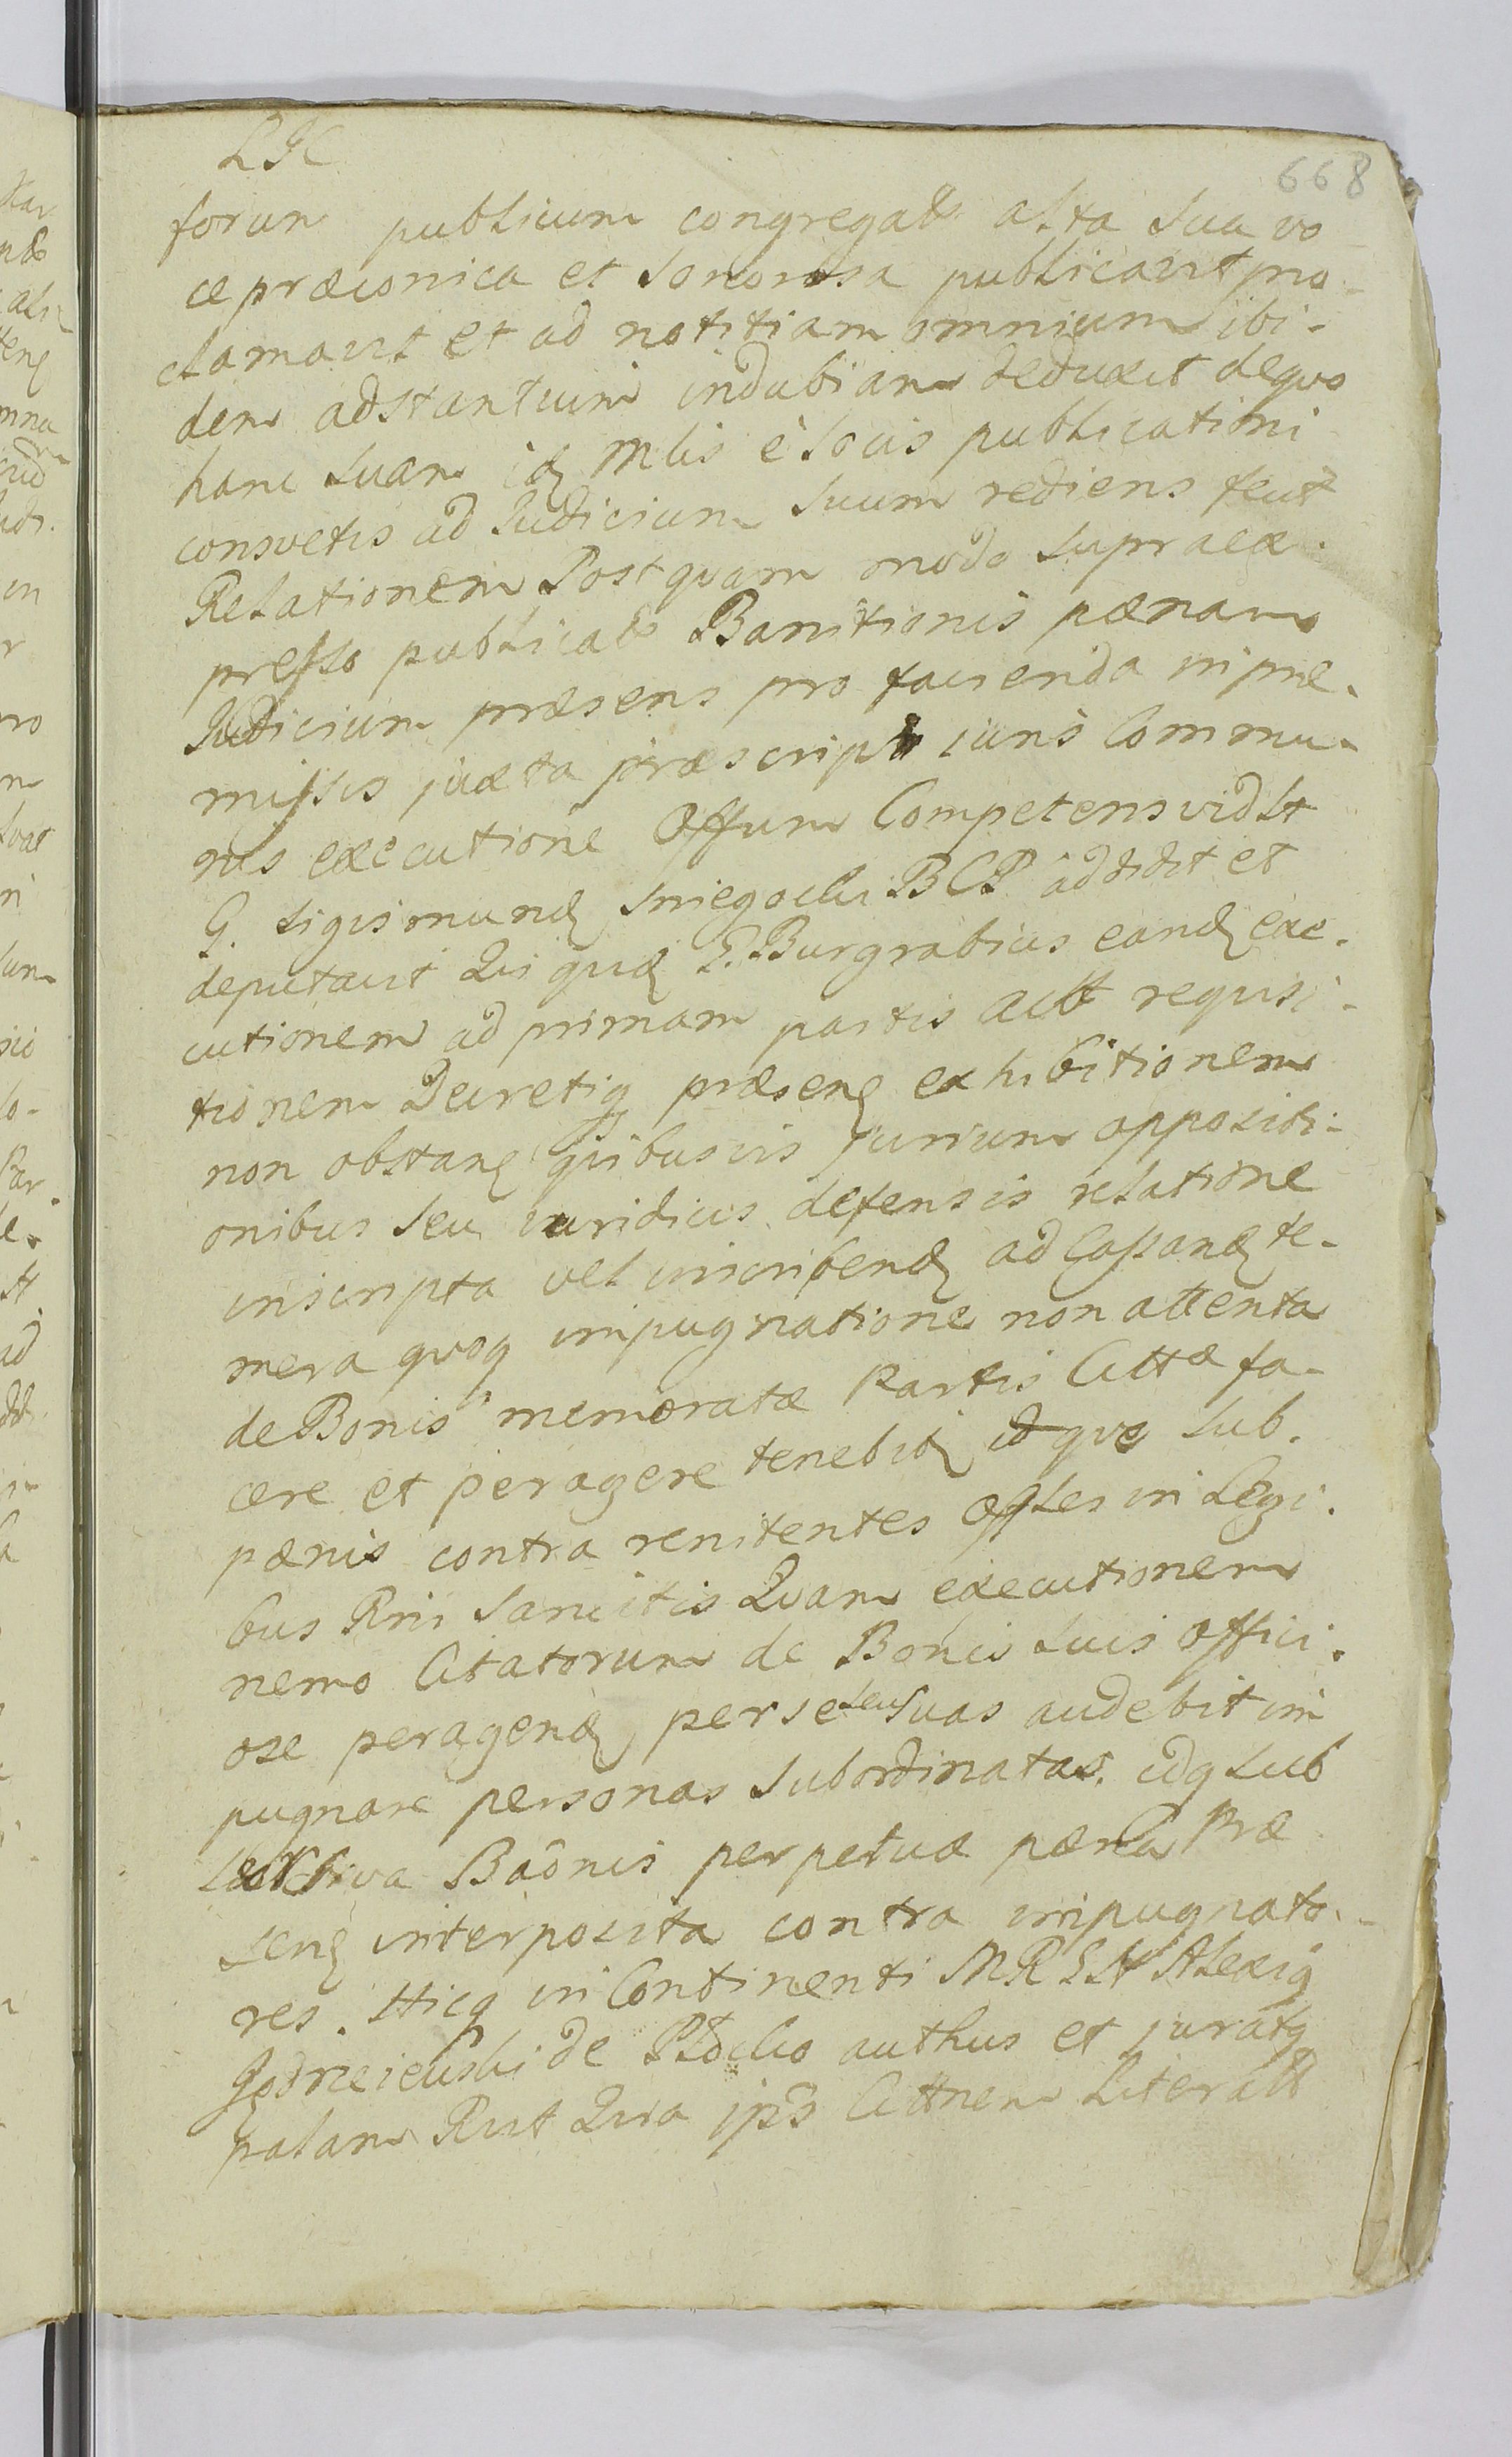 668
forum publicum congregatt alta sua vo
ce præconica et sonorosa publicavit pro-
clamavit et ad notitiam omnium ibi-
dem adstantium indubiam deduxit dequo
hanc suam idq Mlis è locis publicationi
consvetis ad Judicium suum rediens fecit
Relationem Postqvam modo supraex-
presso publicatt Banitionis pænam
Judicium præsens pro facienda in præ-
missis juxta præscript iuris Commu-
nis executione Offum Competens vidlt
G. Sigismund Sniegocki BCP addidit et
deputavit Qui quid P. Burgrabius eand exe-
cutionem ad primam partis Actt requisi-
tionem Decretiq præsen exhibitionem
non obstan qvibusvis Jurium oppositi-
onibus seu iuridicis defensis relatione
inscripta vel inscribend ad Cassand te-
mera qvoq impugnatione non attenta
de Bonis memoratæ Partis Cittæ fa-
cere et peragere tenebit idqve sub
pænis contra renitentes offles in Legi-
bus Rni Sancitis Qvam executionem
nemo Citatorum de Bonis suis offici-
ose peragend, per se seu suas audebit im
pugnare personas subordinatas, idq sub
Bãonis perpetuæ pæna Præ
sen interposita contra impugnato-
res. Hicq in Continenti MRSN Alexiq
de Plocko authus et juratq
palam Rvit Qvia ips Cittnem Literatt